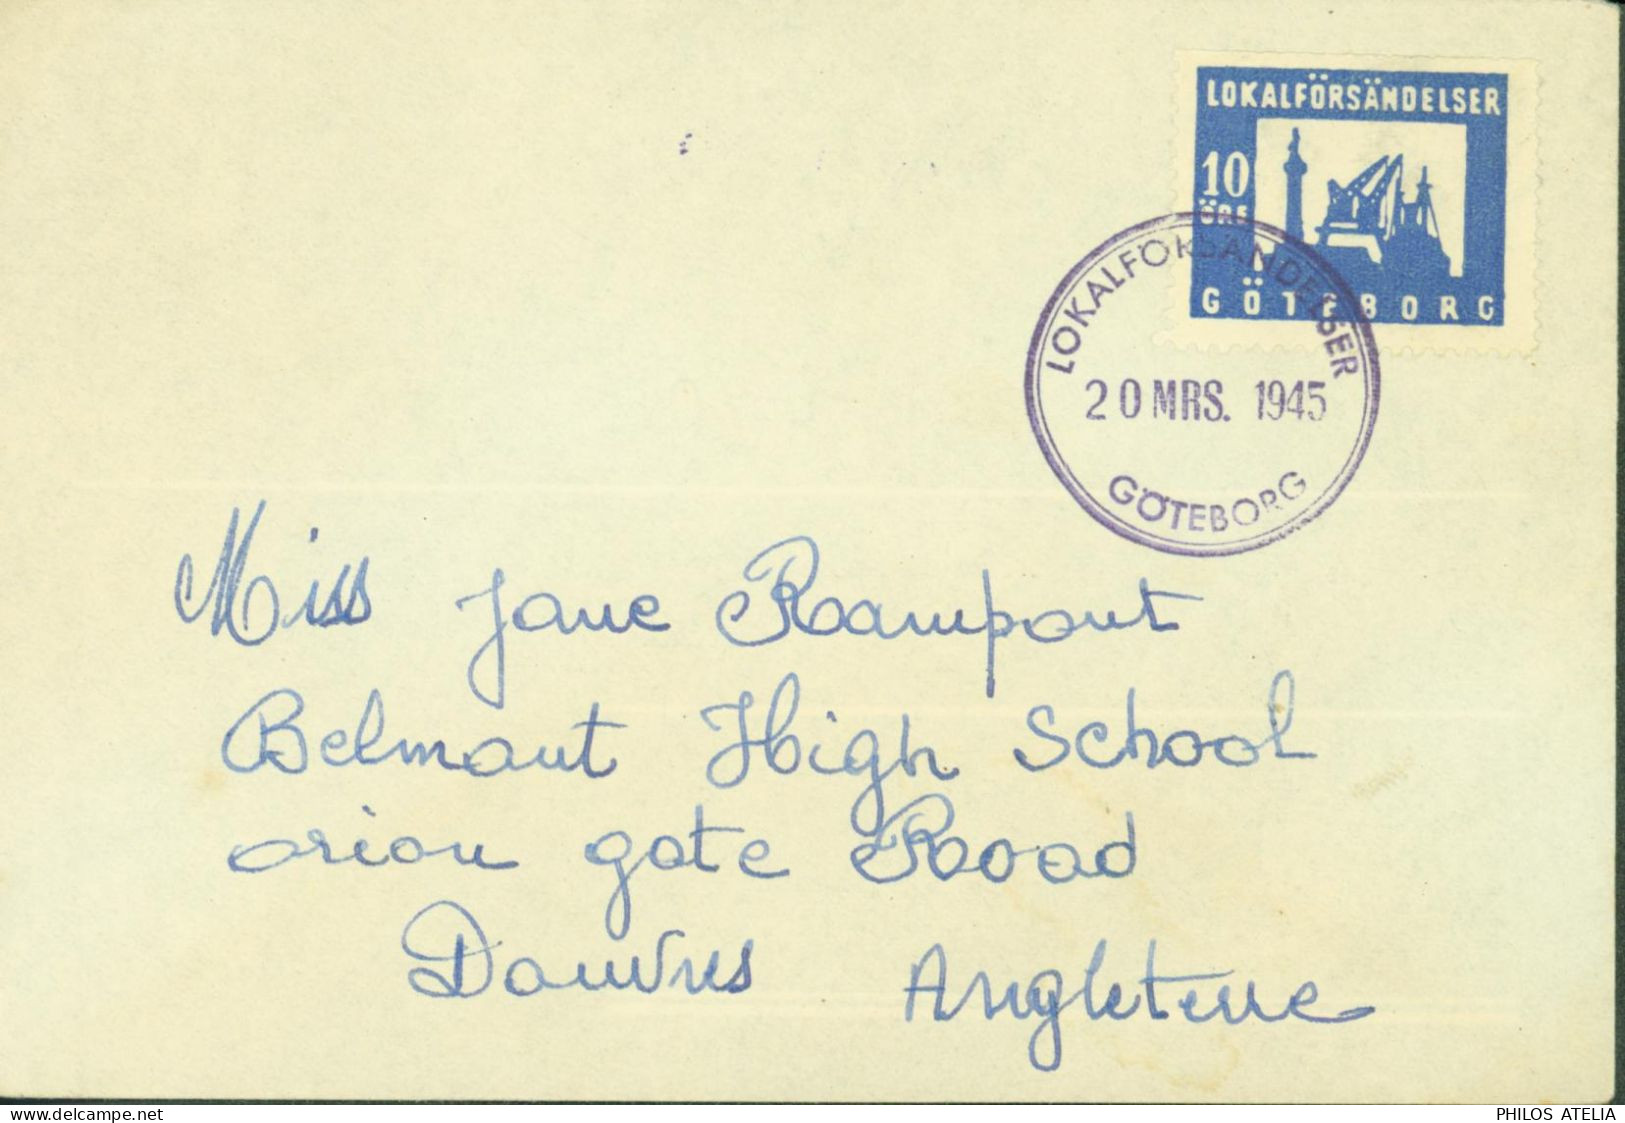 LOKALFÖRSÄNDELSER
10
ÖRE
GÖTEBORG
LOKALFÖRSÄNDELSER
20 MRS. 1945
GÖTEBORG
Miss Jane Rampont
Belmont High School
orion gate Road
Angleterre
www.delcampe.net
PHILOS ATELIA